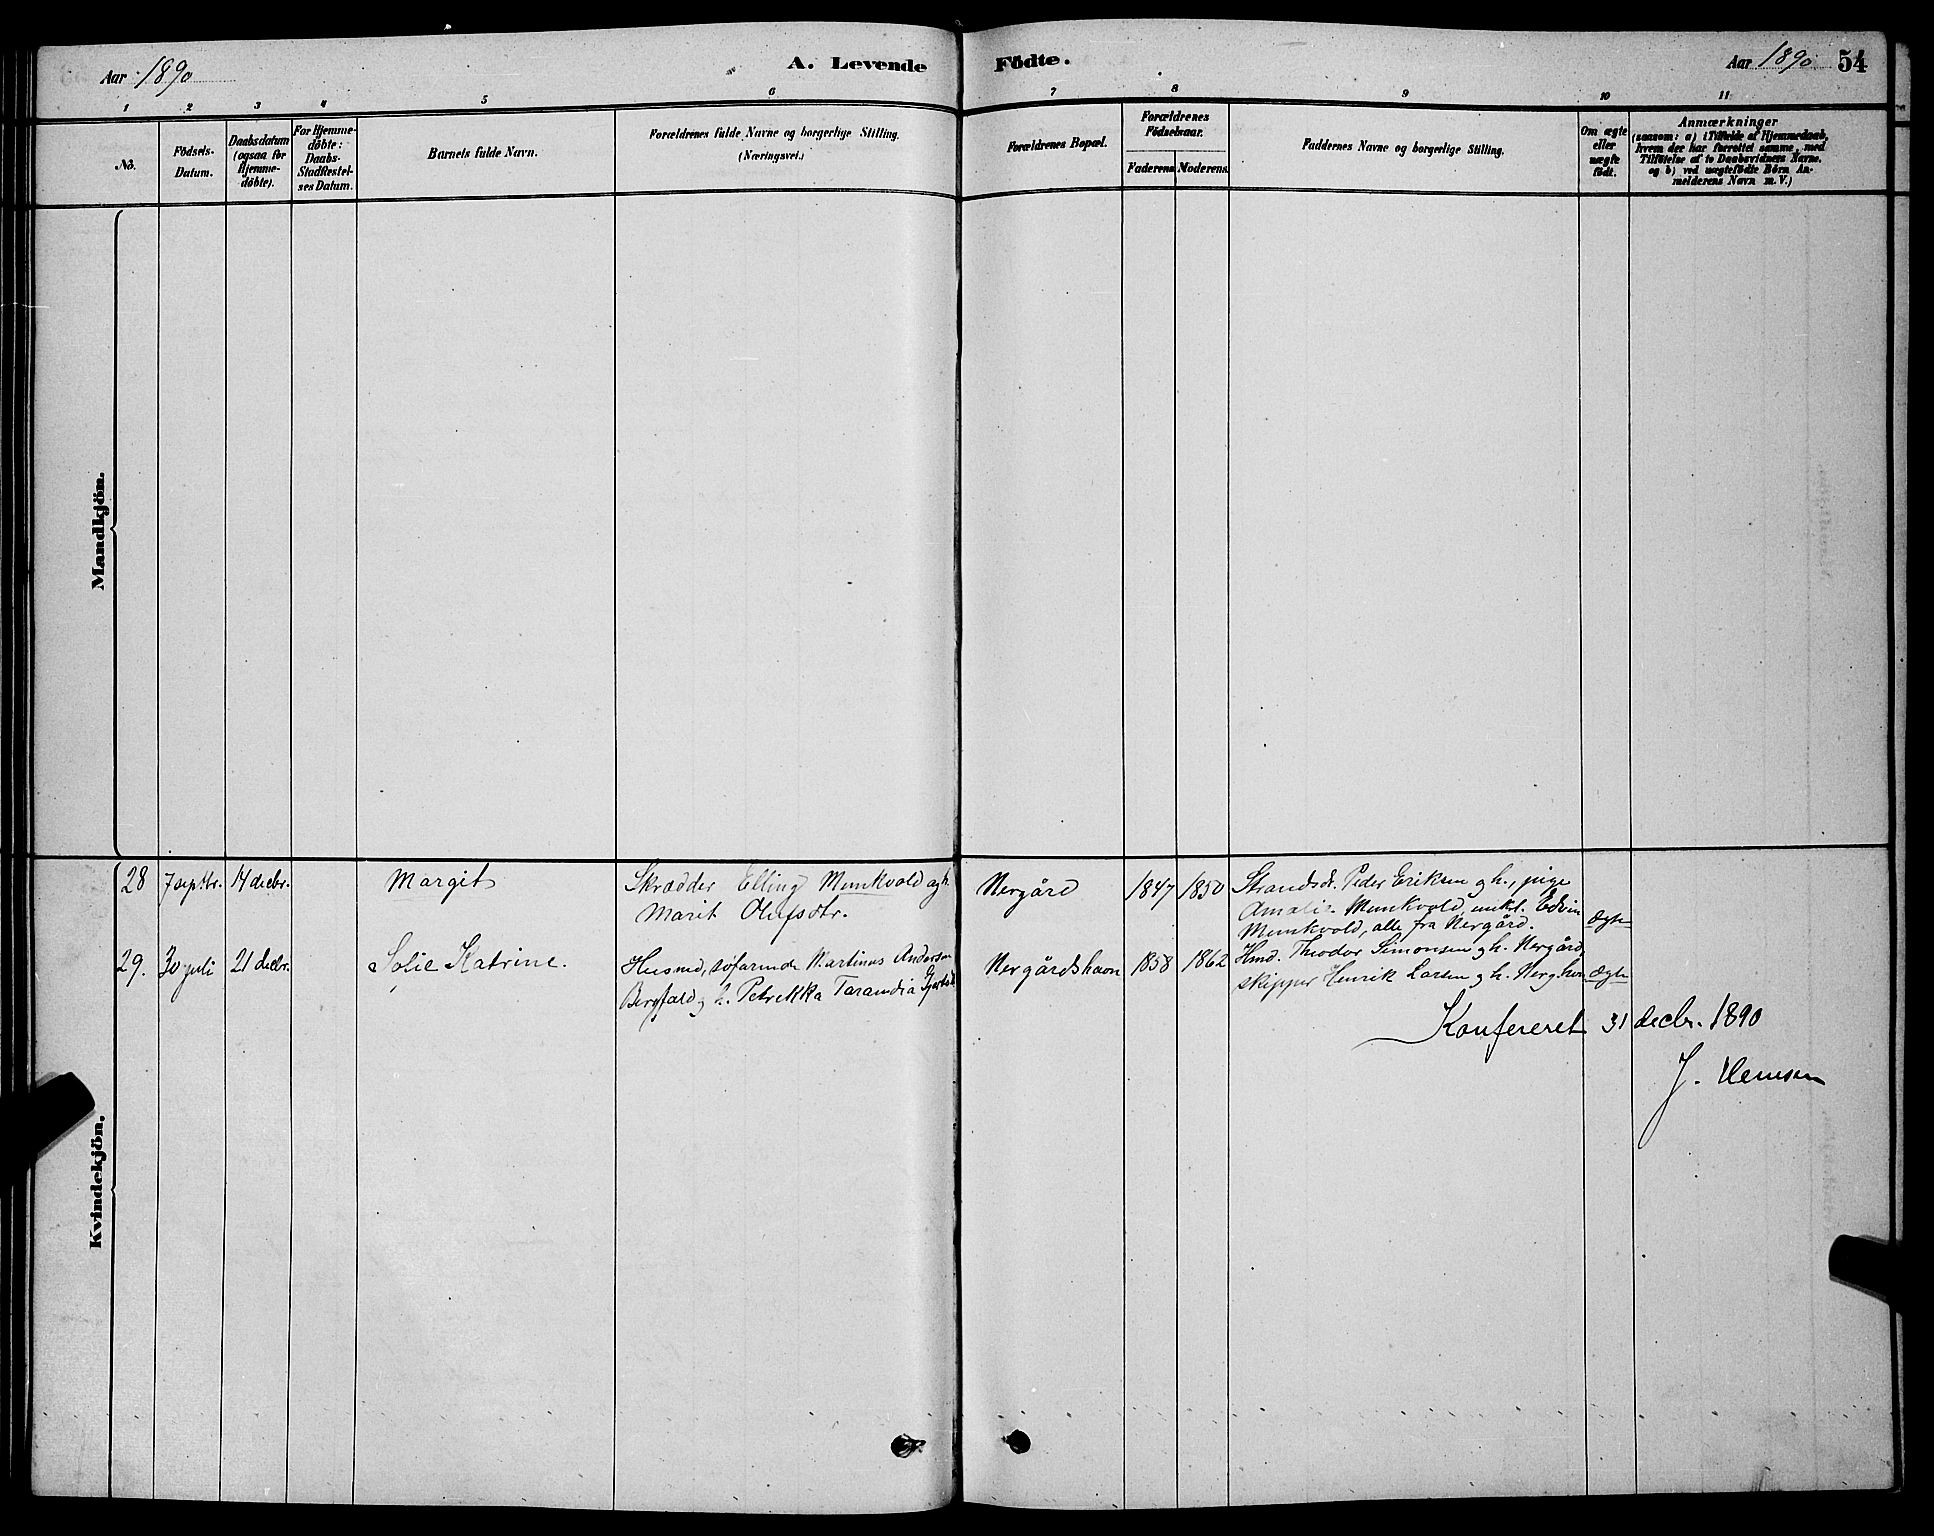 Aar 1890
A. Levende Födte.
Aar 1890 54
1 2 3 4 5 6 7 8 9 10 11
No.
Födsels-
Datum.
Daabsdatum
(ogsaa for
Hjemme-
döbte).
For Hjemme-
döbte:
Daabs-
Stadfæstel-
ses Datum.
Barnets fulde Navn.
Forældrenes fulde Navne og borgerlige Stilling.
(Næringsvei.)
Forældrenes Bopæl.
Forældrenes
Födselsaar.
Faderens Moderens
Faddernes Navne og borgerlige Stilling.
Om ægte
eller
uægte
født.
Anmærkninger
(saasom: a) i Tilfælde af Hjemmedaab,
hvem der har forrettet samme, med
Tilföielse af to Daabsvidners Navne.
og b) ved uægtefödte Börn An-
melderens Navn m. V.)
Mandkjön.
Kvindekjön.
28 7 septbr. 14 decbr. Margit
Skrædder Elling Munkvold og h.
Marit Olufsdtr.
Nergård 1847 1850
Strandsdr. Peder Eriksen og h., pige
Amalie Munkvold, unkl. Edvin
Munkvold, alle fra Nergård.
Ægte
29. 30 juli 21 decbr. Sofie Katrine.
Husmd, søfarende Martinus Andersen
Bergfald og h. Petrikka
Nergårdshavn 1858 1862
Hmd. Theodor Simonsen og h. Nergård,
skipper Henrik Larsen og h. Nerg.havn
Ægte
Konfereret 31 decbr. 1890
J.